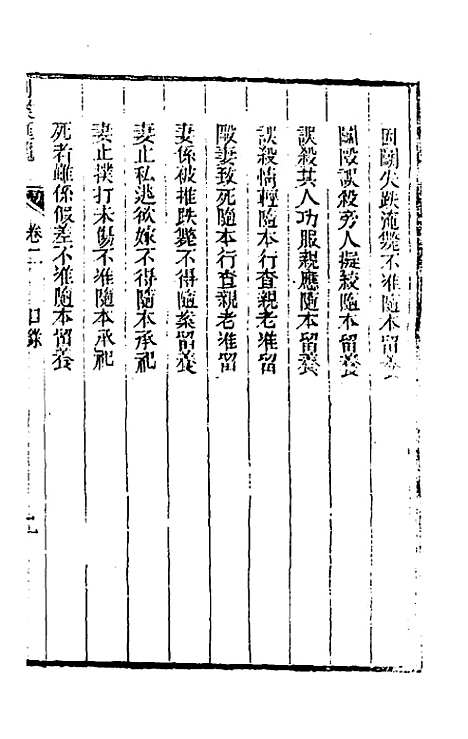 因鬭失跌淹斃不准隨本留養
鬭毆誤殺旁人擬絞隨本留養
誤殺其人功服親應隨本留養
誤殺情輕隨本行查親老准留
毆妻致死隨本行查親老准留
妻係被推跌斃不得隨案留養
妻止私逃欲嫁不得隨本承祀
妻止撲打未傷不准隨本承祀
死者雖係假差不准隨本留養
卷二 目錄